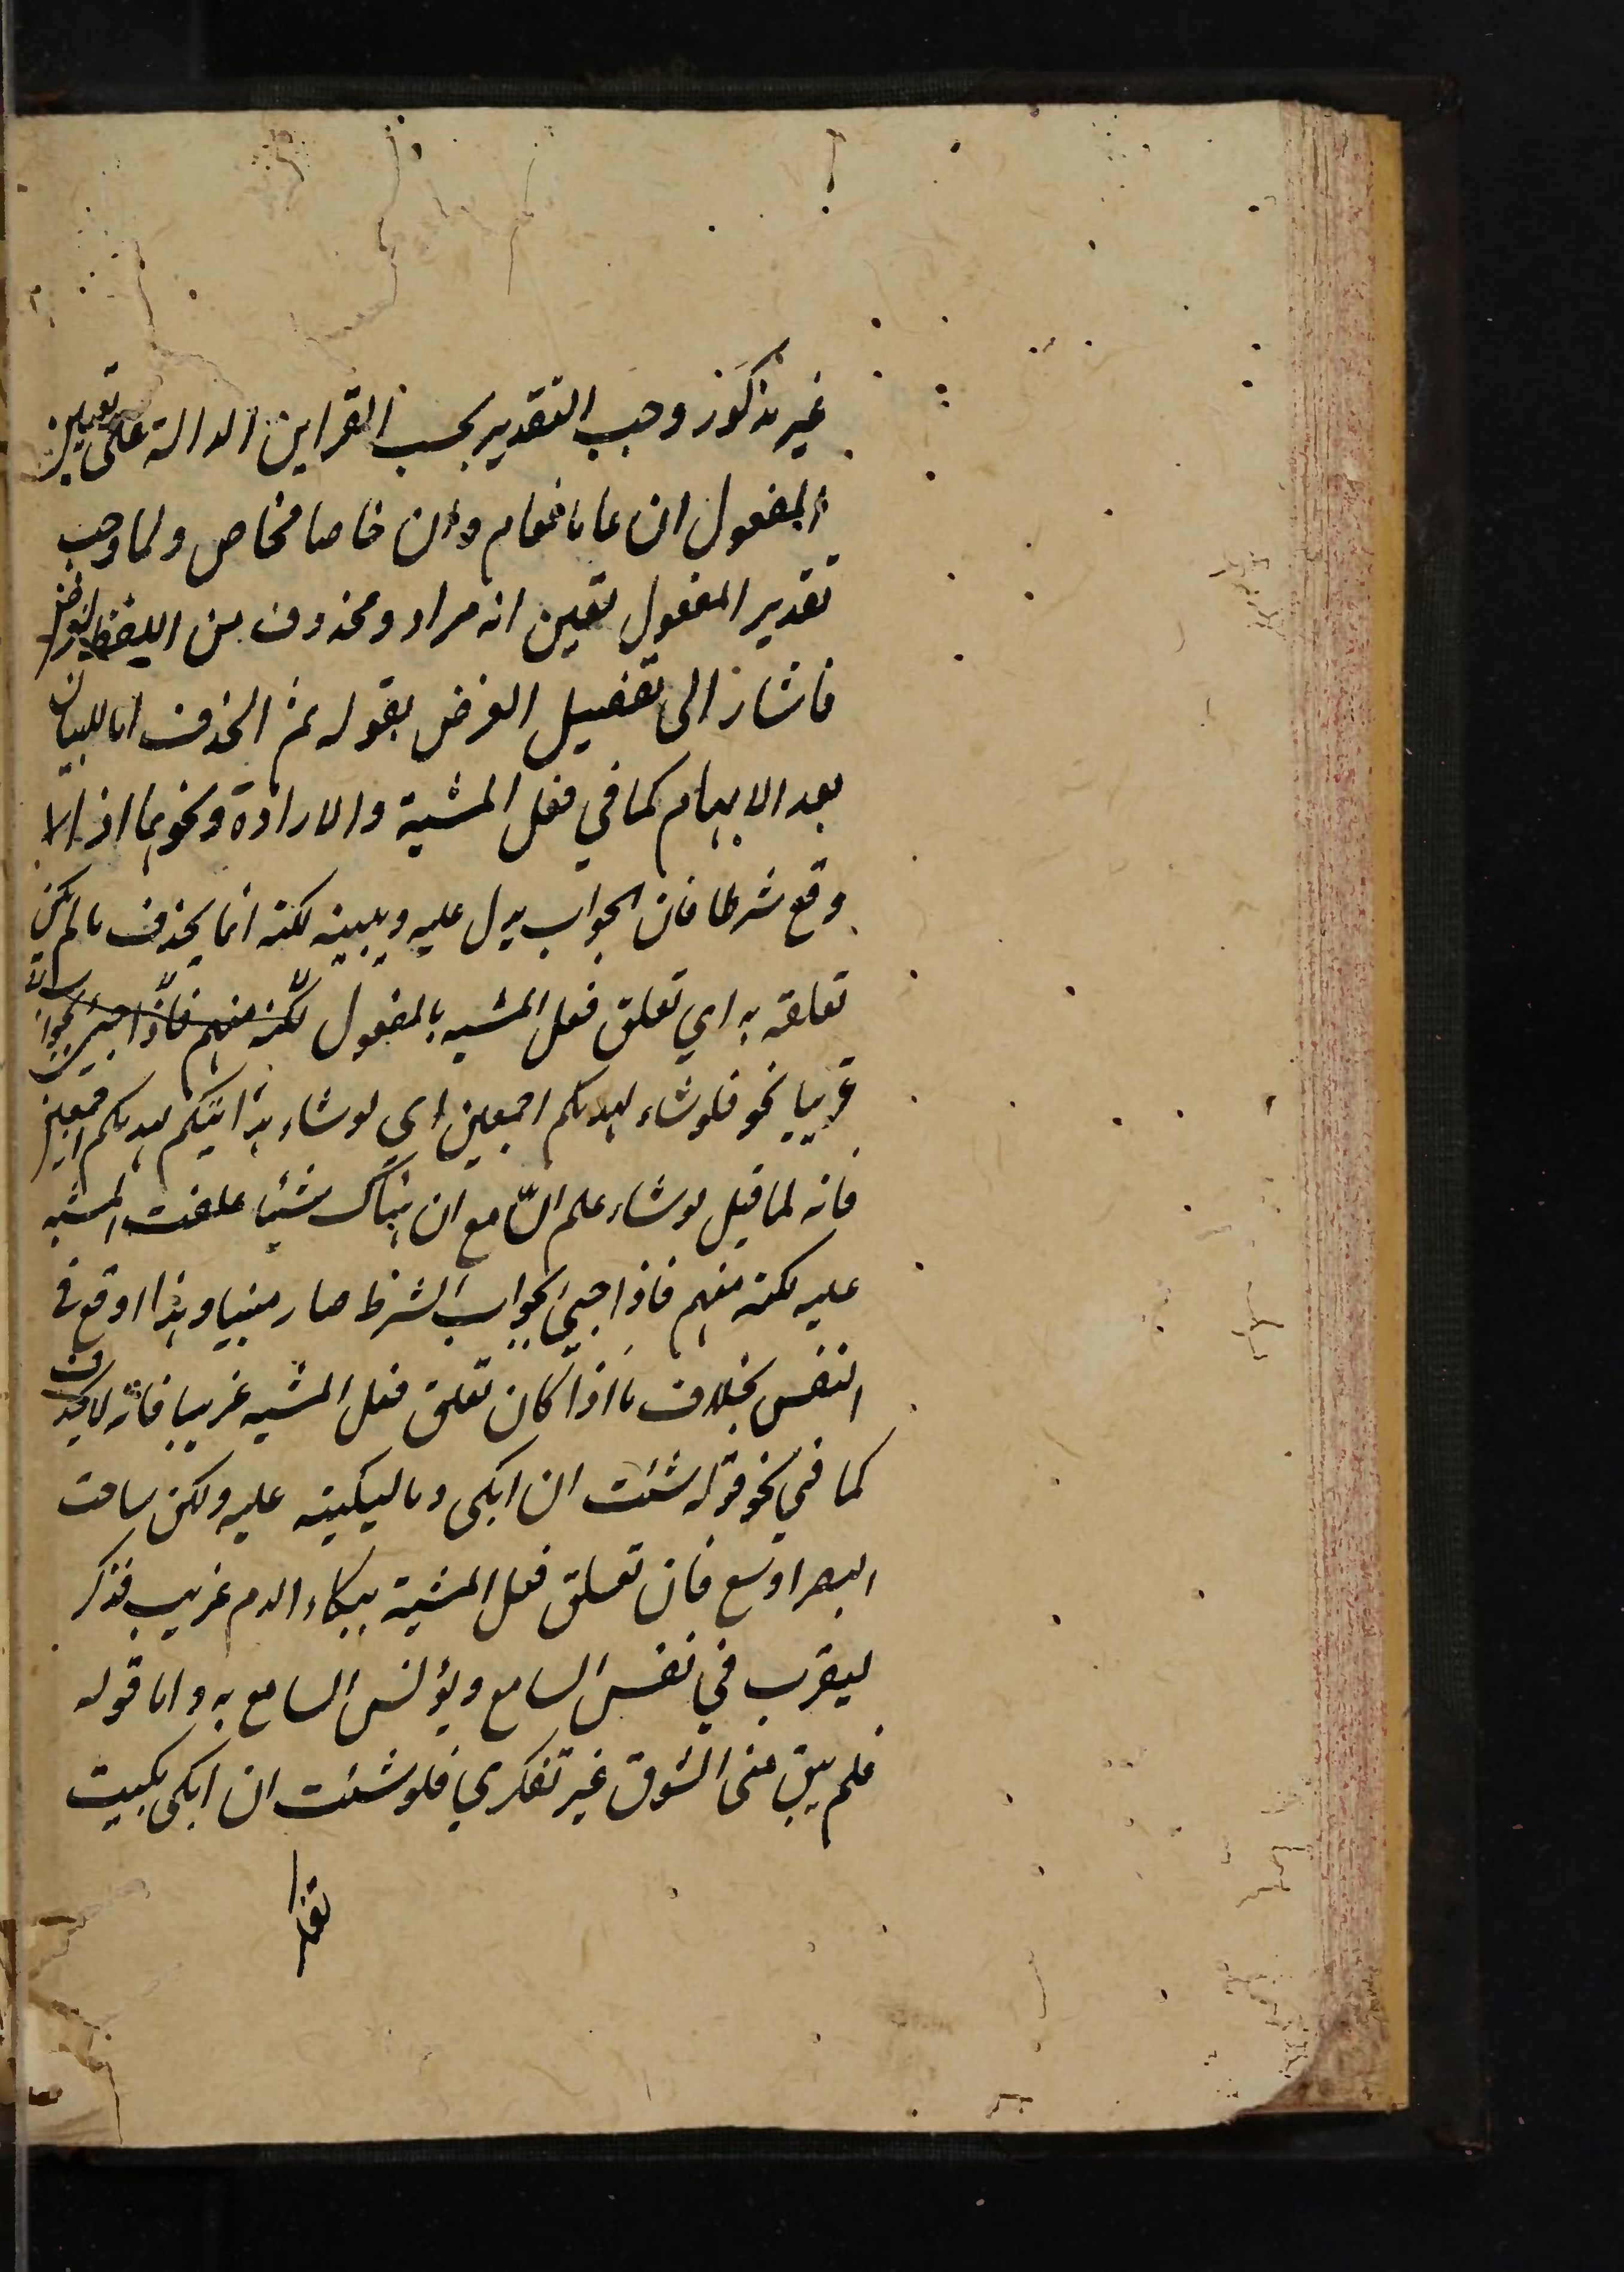 غير مذكور وجب التقدير بحسب القراين الدالة على تعيين
المفعول ان عاما فعام وان خاصا فخاص ولما وجب
تقدير المفعول تعين انه مراد ومحذوف من اللفظ لغرض
فاشار الى تفصيل الغرض بقوله ثم الحذف اما للبيان
بعد الابهام كما في فعل المشية والارادة ونحوهما اذا
وقع شرطا فان الجواب يدل عليه ويبينه لكنه انما يحذف ما لم يكن
تعلقه به اي تعلق فعل المشيه بالمفعول لكنه مبهم فاذا جيئ بجواب
غريبا نحو فلو شاء لهديكم اجمعين اي لو شاء هدايتكم لهديكم اجمعين
فانه لما قيل لو شاء علم السامع ان هناك شيئا علقت المشيه
عليه لكنه مبهم فاذا جيئ بجواب الشرط صار مبنيا وهذا اوقع في
النفس بخلاف ما اذا كان تعلق فعل المشيه غريبا فانه لا يحذف
كما في نحو قوله شئت ان ابكى وما لبكيته عليه ولكن ساحت
البصر اوسع فان تعلق فعل المشية ببكاء الدم غريب فذكر
ليقرب في نفس السامع ويؤنس السامع به واما قوله
فلم يبق منى الشوق غير تفكري فلو شئت ان ابكى بكيت
تفكرا